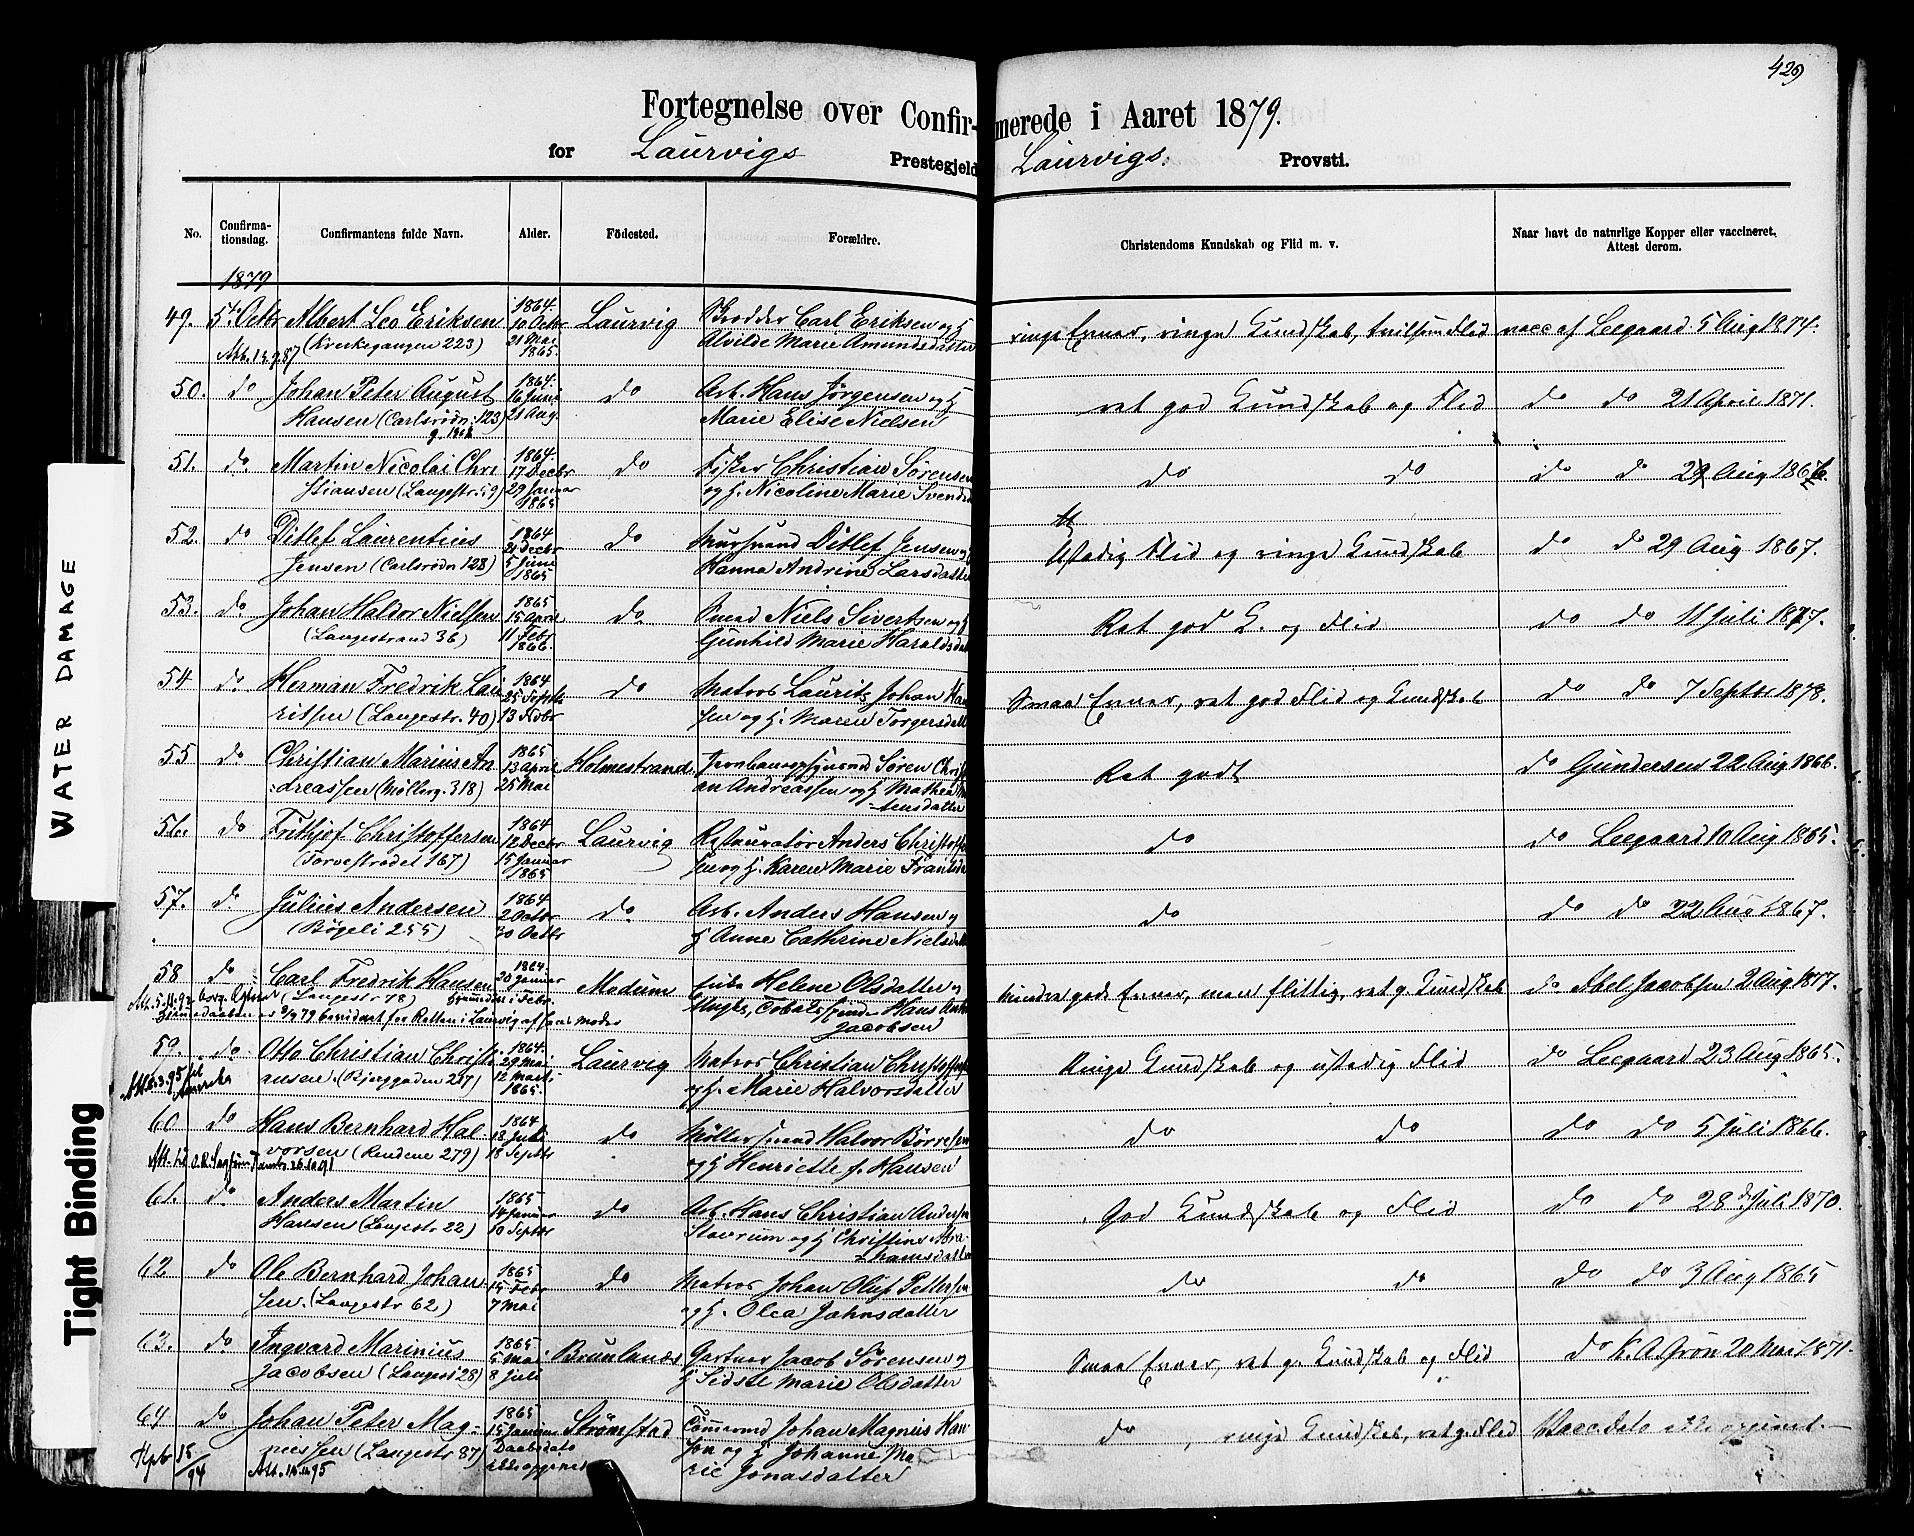 429
Fortegnelse over Confirmerede i Aaret 1879.
for Laurvigs Prestegjeld Laurvigs Provsti.
No. Confirmationsdag. Confirmantens fulde Navn. Alder. Födested. Forældre. Christendoms Kundskab og Flid m. v. Naar havt de naturlige Kopper eller vaccineret. Attest derom.
1879
49. 5te Octbr Albert Leo Eriksen 1864 10 Octbr Laurvig Skrædder Carl Eriksen og H ringe Evner, ringe Kundskab, Flid vacc af Leegaard 5 Aug 1874.
(223) 21 Mai 1865 Alvilde Marie Amundsdatter
50. do Johan Peter August 1864 16 Juni do Arb. Hans Jørgensen og H ret god Kundskab og Flid do do 21 April 1871.
Hansen (Carlsrødn. 123) 21 Aug. Marie Elise Nielsen
51. do Martin Nicolai Chri 1864 17 Decbr do Fisker Christian Sørensen do do do do Aug
stiansen (Langestr. 59) 29 Januar 1865 og H. Nicoline Marie Svends
52. do Ditlef Laurentius 1864 21 Decbr do Murersvend Ditlef Jensen og H Ustadig Flid og ringe Kundskab do do 29 Aug 1867.
Jensen (Carlsrødn 128) 5 Juni 1865 Hanna Andrine Larsdatter
53. do Johan Haldor Nielsen 1865 15 April do Smed Niels Sivertsen og H Ret god K. og Flid do do 11 Juli
(Langestrand 36) 11 Febr 1866. Gunhild Marie Haraldsd
54 do Herman Fredrik Lau 1864 25 Septbr do Matros Lauritz Johan Han Smaa Evner, ret god Flid og Kundskab do do 7 Septbr 1878.
ritsen (Langestr. 40) sen og H. Maren Torgersd
55 do Christian Marius An 1865 13 April Holmestrand Søren Christi Ret godt do Gundersen 22 Aug 1866.
dreassen (Møllerg. 318) 25 Mai an Andreassen og H Mathea
56. do Frithjof Christoffersen 1864 12 Decbr Laurvig Restauratør Anders Christoffer do do Leegaard 10 Aug 1865.
(Torvestrædet 167) 15 Januar 1865 sen og H. Karen Marie Frantsd
57. do Julius Andersen 1864 2 Octbr do Arb. Anders Hansen og do do do 22 Aug 1867.
(Bøgeli 255) 30 Octbr H Anne Cathrine Nielsd
58 do Carl Fredrik Hansen 1864 20 Januar Modum Helene Olsdatter og mindre gode Evner, men flittig, ret g. Kundskab do Abel Jacobsen 2 Aug 1877.
(Langestr 78) Hans
Jacobsen
59. do Otto Christian Christi 1864 29 Mai Laurvig Matros Christian Ringe Kundskab og ustadig Flid do Leegaard 23 Aug 1865.
ansen. (Bjerggaden 217) 12 Marts 1865. og H. Marie Halvorsdatter
60 do Hans Bernhard Hal- 1864 18 Juli do Møllersvend Halvor Børresen do do do do 5 Juli 1866.
vorsen (Rendene 279) 18 Septbr og H Henriette f. Hansen
61. do Anders Martin 1865 14 Januar do Arb. Hans Christian Andersen God Kundskab og Flid do do 28 Juli 1870.
Hansen (Langestr. 22) 10 Septbr Stavrum og H Christine Abra-
hamsdatter
62 do Ole Bernhard Johan 1865 15 Febr do Matros Johan Oluf Pettersen do do do do 3 Aug 1865
sen. (Langestr 62) 7 Mai og H. Olea Jahnsdatter
63. do Ingvard Marinius 1865 5 Mai Brunlanæs Gartner Jacob Sørensen og Smaa Evner, ret g. Kundskab og Flid do K. A. Grøn 20 Mai 1871.
Jacobsen (Langest 28) 8 Juli H Sidsel Marie Olsdatter
64 do Johan Peter Mag- 1865 15 Januar Strømstad Tømmermd Johan Magnus Han do, ringe Kundskab, ret g. Flid Vacc.dato ikke opgivet
nussen (Langestr 87) Daabsdato ikke opgivet sen og H Johanne Ma
Att. 14.11.95 rie Jonasdatter
WATER DAMAGE
Tight Binding